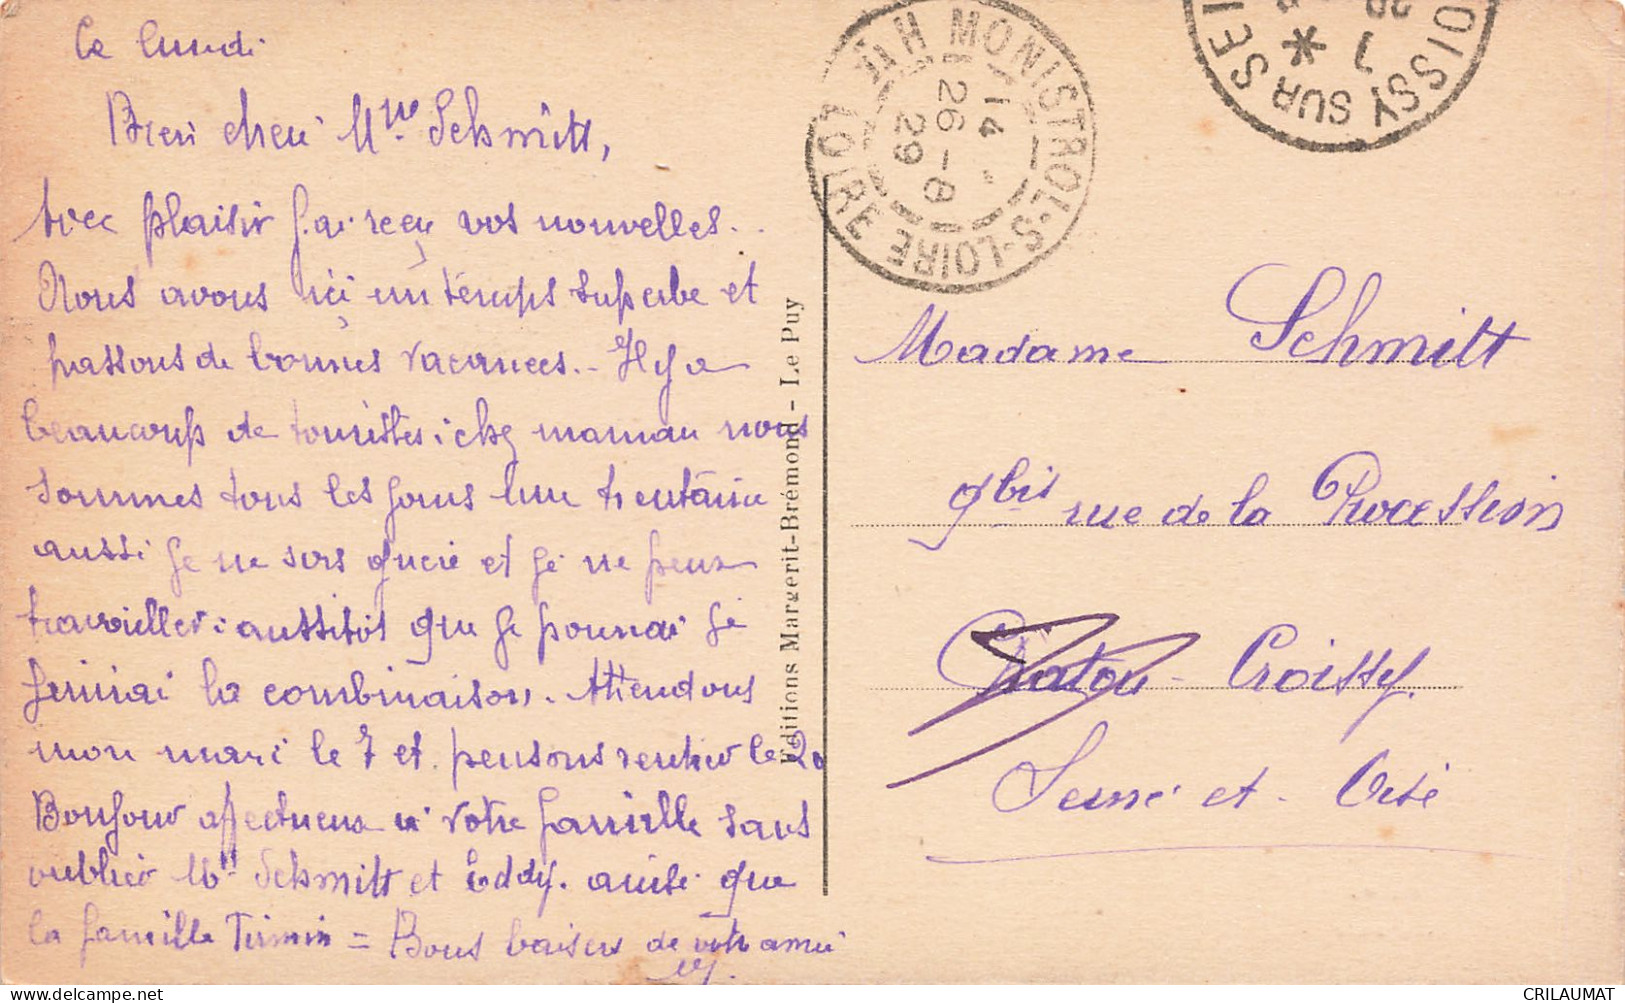 Ce lundi
Bien cher Mme Schmitt,
Avec plaisir j'ai reçu vos nouvelles..
Nous avons ici un temps superbe et
passons de bonnes vacances.- Il y a
beaucoup de touristes; chez maman nous
sommes tous les jours une trentaine
aussi je ne sors guère et je ne peux
travailler; aussitôt que je pourrai je
finirai la combinaison. Attendons
mon mari le 7 et pensons rentrer le 20
Bonjour affectueux à votre famille sans
oublier Mr Schmitt et Eddy. ainsi que
la famille =  Bons baisers de votre amie
MONISTROL-S-LOIRE
HTE LOIRE
14
26-8
29
OISSY SUR SEI
*
1
Editions Margerit-Brémond - Le Puy
Madame Schmitt
9 bis rue de la Procession
Chatou - Croissy.
Seine et Oise
CRILAUMAT